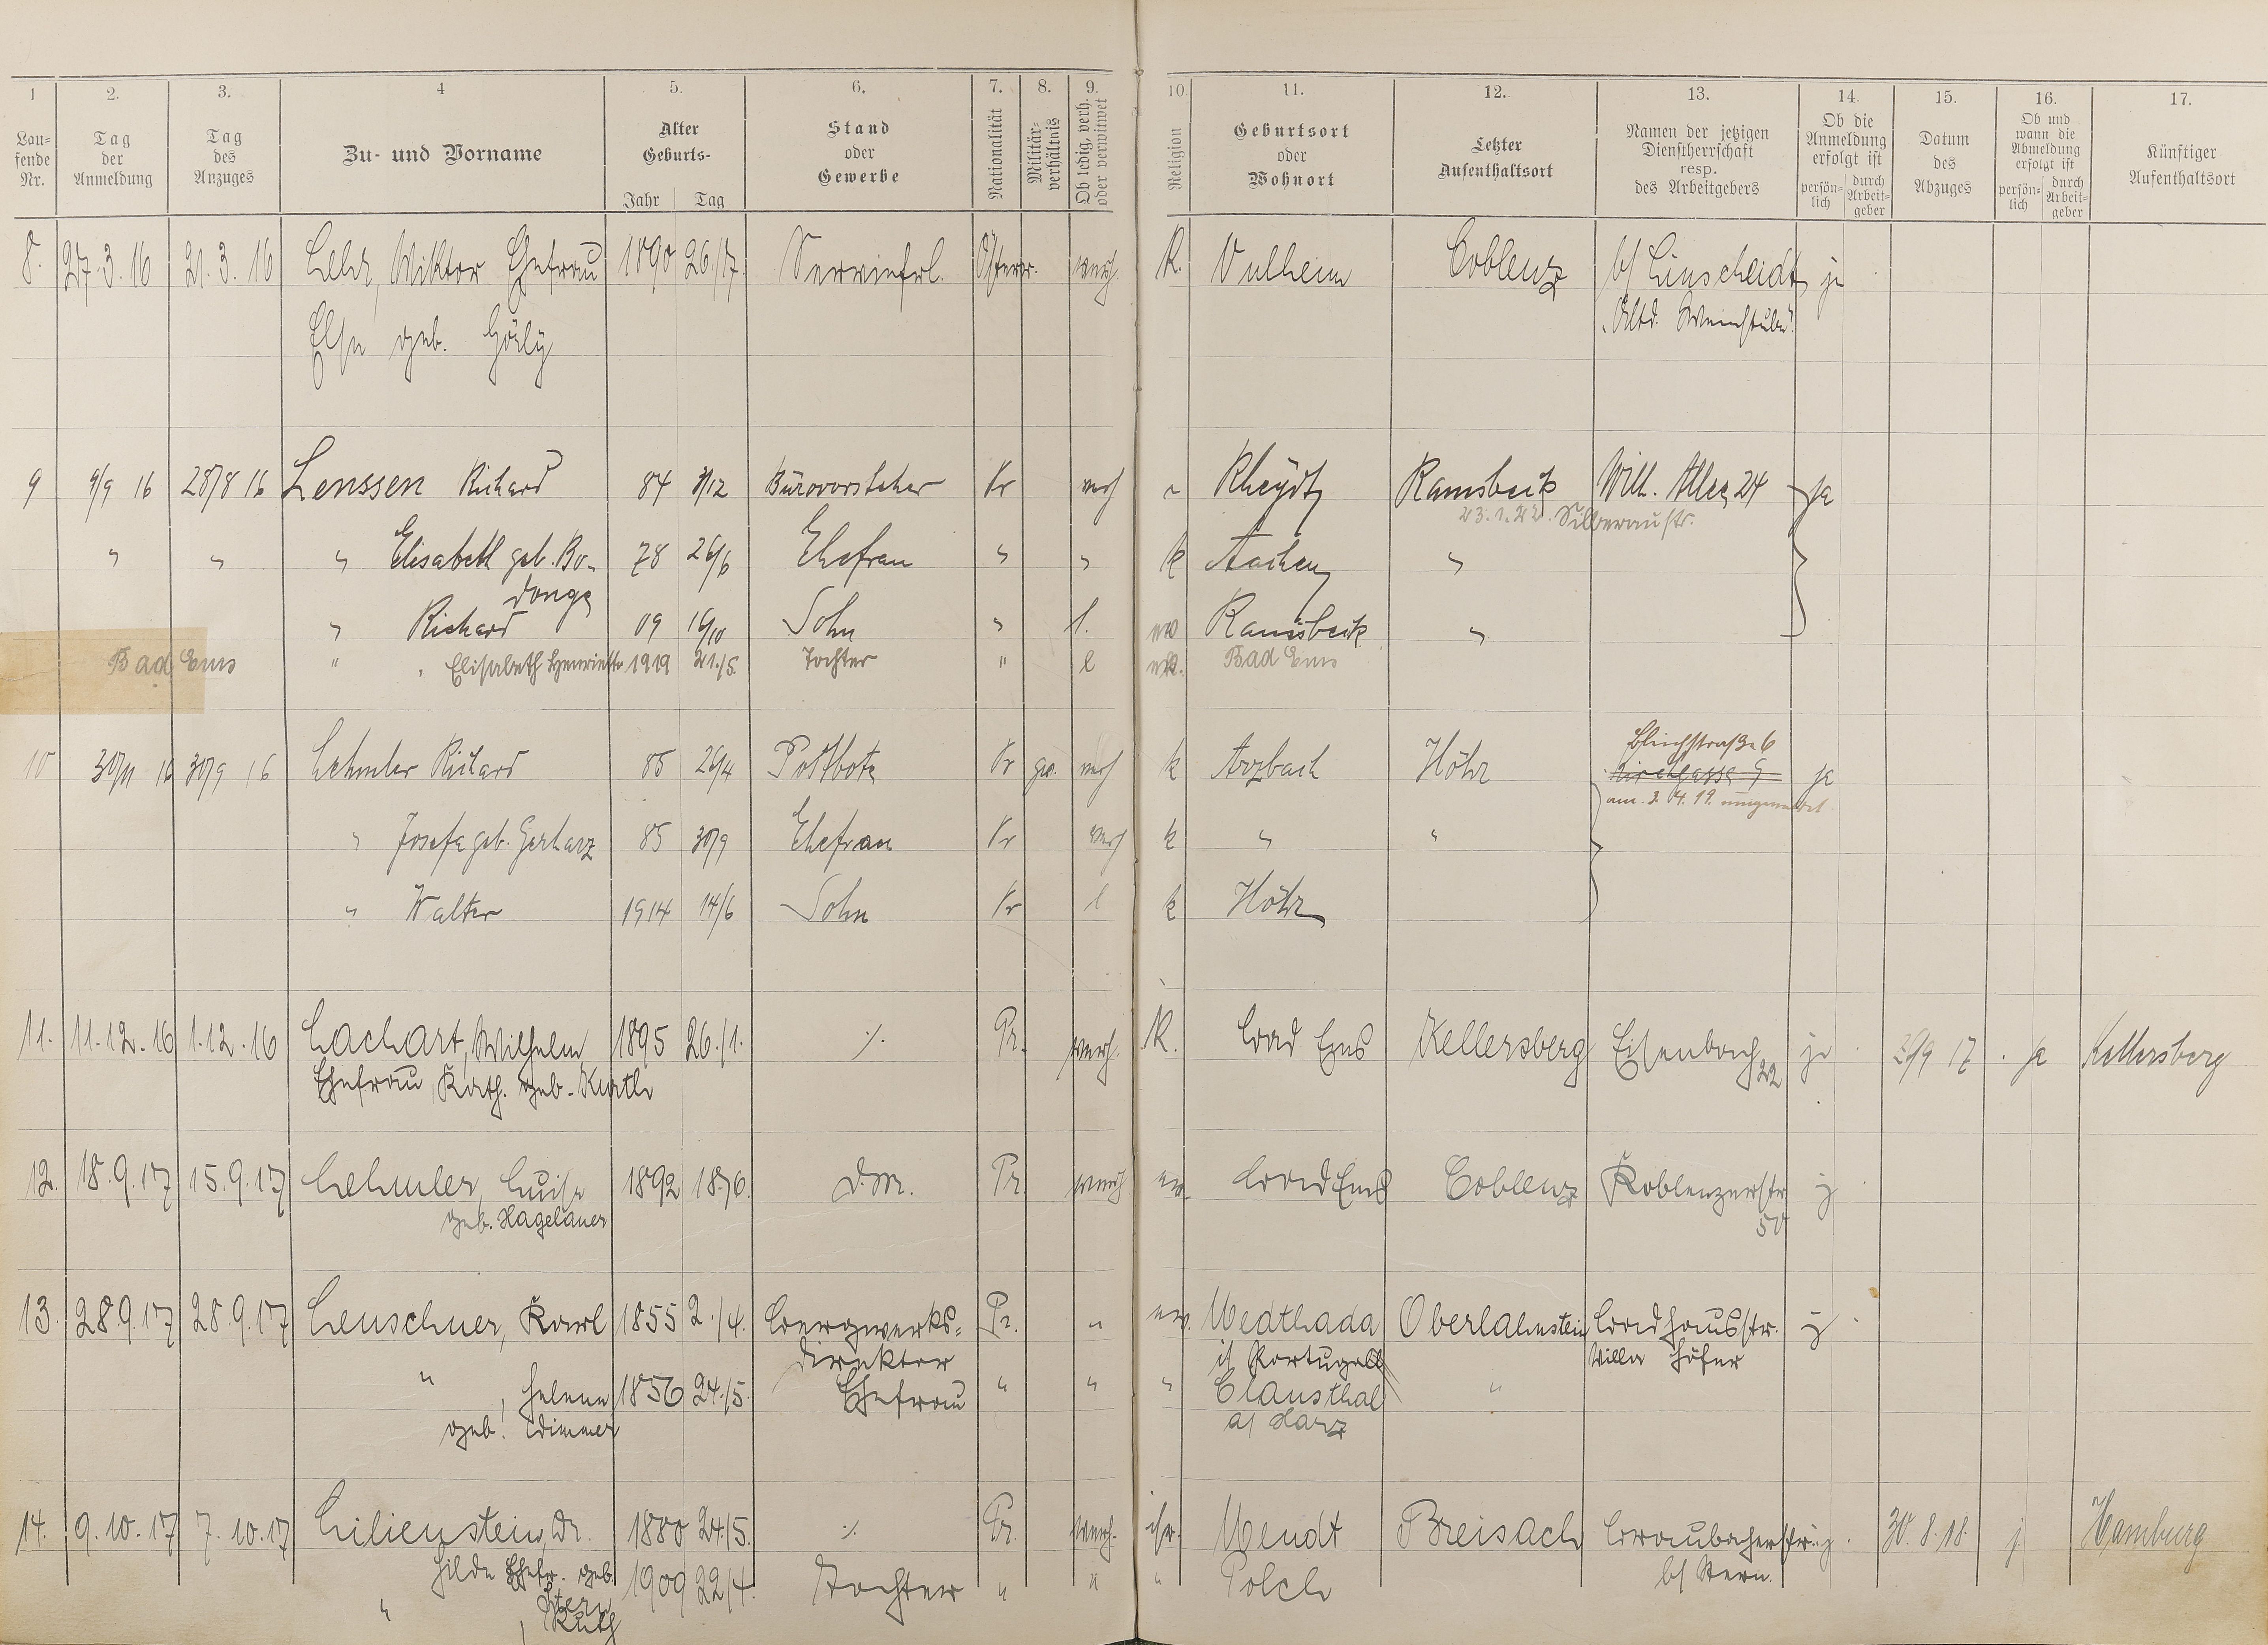 1 2. 3. 4 5. 6. 7. 8. 9. 10. 11. 12. 13. 14. 15. 16. 17.
Lau=fende Nr. Tag der Anmeldung Tag des Anzuges Zu- und Vorname Alter Geburts- Jahr Tag Stand oder Gewerbe Nationalität Militär=verhältnis Ob ledig, verh. oder verwitwet Religion Geburtsort oder Wohnort Letzter Aufenthaltsort Namen der jetzigen Dienstherrschaft resp. des Arbeitgebers Ob die Anmeldung erfolgt ist persön=lich durch Arbeit=geber Datum des Abzuges Ob und wann die Abmeldung erfolgt ist persön=lich durch Arbeit=geber Künftiger Aufenthaltsort
8. 27.3.16 21.3.16 Lehr, Wiktor Ehefrau 1890 26./7. Servierfrl. Österr. verh. K. Coblenz b/ Linscheidt ja
Else geb. „Altd. Weinstube“
9 9/9 16 28/8 16 Lenssen Richard 84 3/12 Bürovorsteher Pr verh Rheydt Ramsbeck Wilh. Allee 24 ja
23.1.22. Silberaustr.
" " " Elisabeth geb. Bo- 78 26/6 Ehefrau " " k Aachen "
donge
" Richard 09 16/10 Sohn " l. ev Ramsbeck "
Bad Ems " " Elisabeth Henriette 1919 21./5. Tochter " l Bad Ems
Bleichstraße 6
10 30/11 16 30/9 16 Lehmler Richard 85 26/4 Postbote Pr verh k Arzbach Höhr Kirchgasse 9 ja
am 3.4.19. umgemeldet
" Josefa geb. Gerharz 85 30/9 Ehefrau Pr verh k " "
" Walter 1914 14/6 Sohn Pr l k Höhr
11. 11.12.16 1.12.16 Lachart, Wilhelm 1895 26./1. ./. Pr. verh. K. Bad Ems Kellersberg Eisenbach 22 ja 17 ja Kellersberg
Ehefrau, Kath. geb.
12. 18.9.17 15.9.17 Lehmler, Luise 1892 18./6. Pr. verh ev. Bad Ems Coblenz Koblenzerstr. j
geb. Hagelauer 50
13. 28.9.17 28.9.17 Leuschner, Karl 1855 2./4. Bergwerks= Pr. " ev. Oberlahnstein Badhausstr. j
direktor i/ Portugall Villa Höfer
" , Helene 1856 24./5. Ehefrau " " " Clausthal "
geb. a/ Harz
14. 9.10.17 7.10.17 Lilienstein, Dr. 1880 24./5. ./. Pr. verh. isr. Breisach Braubacherstr. j 30.8.18. j Hamburg
Hilde Ehefr. geb. 1909 22/4. Tochter " " " Polch b/ Stern.
Stern
" , Ruth